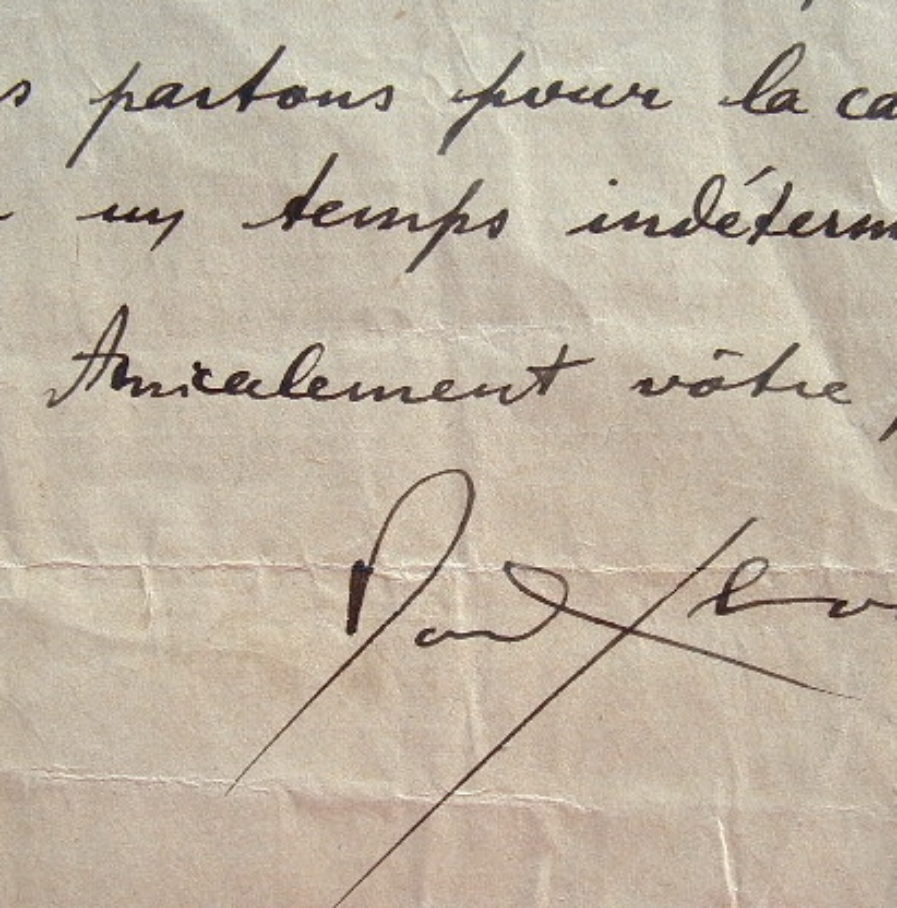 s partons pour la ca
un temps indéterm
Amicalement vôtre
Paul